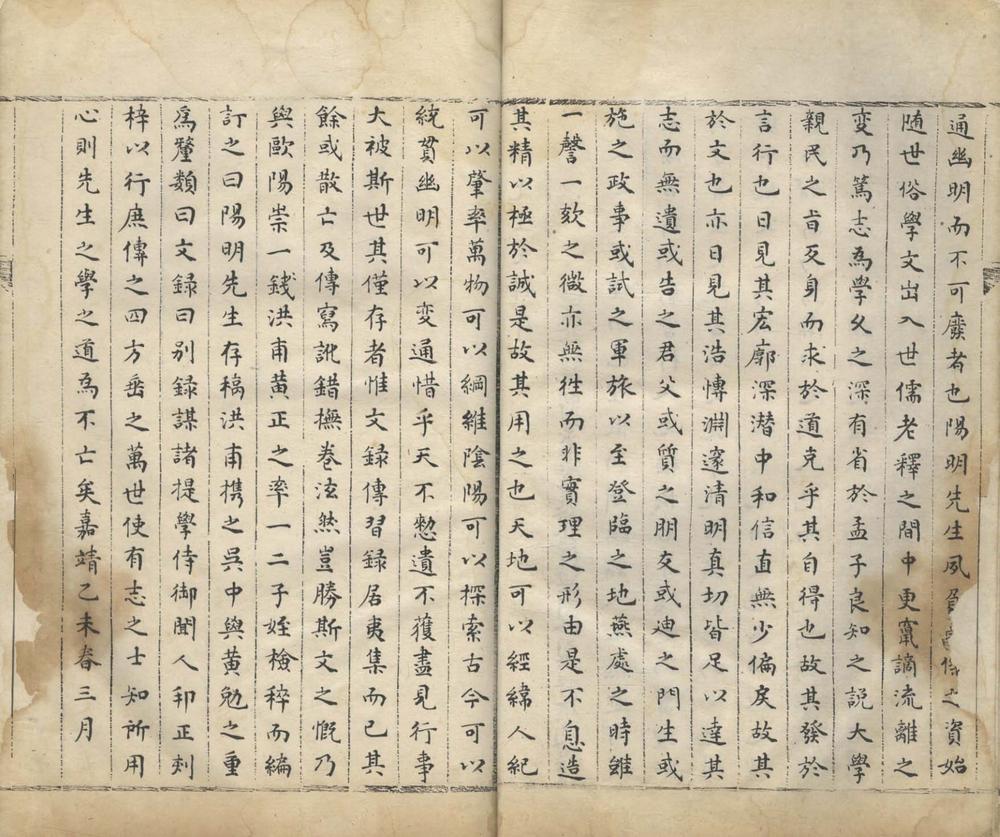 通幽明而不可廢者也陽明先生夙之資始
随世俗學文出入世儒老釋之間中更竄謫流離之
变乃篤志為學久之深有省於孟子良知之説大學
親民之旨反身而求於道充乎其自得也故其發於
言行也日見其宏廓深潜中和信直無少偏戾故其
於文也亦日見其浩愽淵邃清明真切皆足以達其
志而無遺或告之君父或質之朋友或迪之門生或
施之政事或試之軍旅以至登臨之地燕處之時雖
一謦一欬之微亦無徃而非實理之形由是不息造
其精以極於誠是故其用之也天地可以經緯人紀
可以肇率萬物可以綱維陰陽可以探索古今可以
統貫幽明可以变通惜乎天不憗遺不獲盡見行事
大被斯世其僅存者惟文録傳習録居夷集而已其
餘或散亡及傳寫訛錯撫卷泫然豈勝斯文之慨乃
與歐陽崇一錢洪甫黄正之率一二子姪檢稡而編
訂之曰陽明先生存稿洪甫携之吳中與黄勉之重
為釐類曰文録曰别録謀諸提學侍御聞人邦正刻
梓以行庶傳之四方垂之萬世使有志之士知所用
心則先生之學之道為不亡矣嘉靖乙未春三月